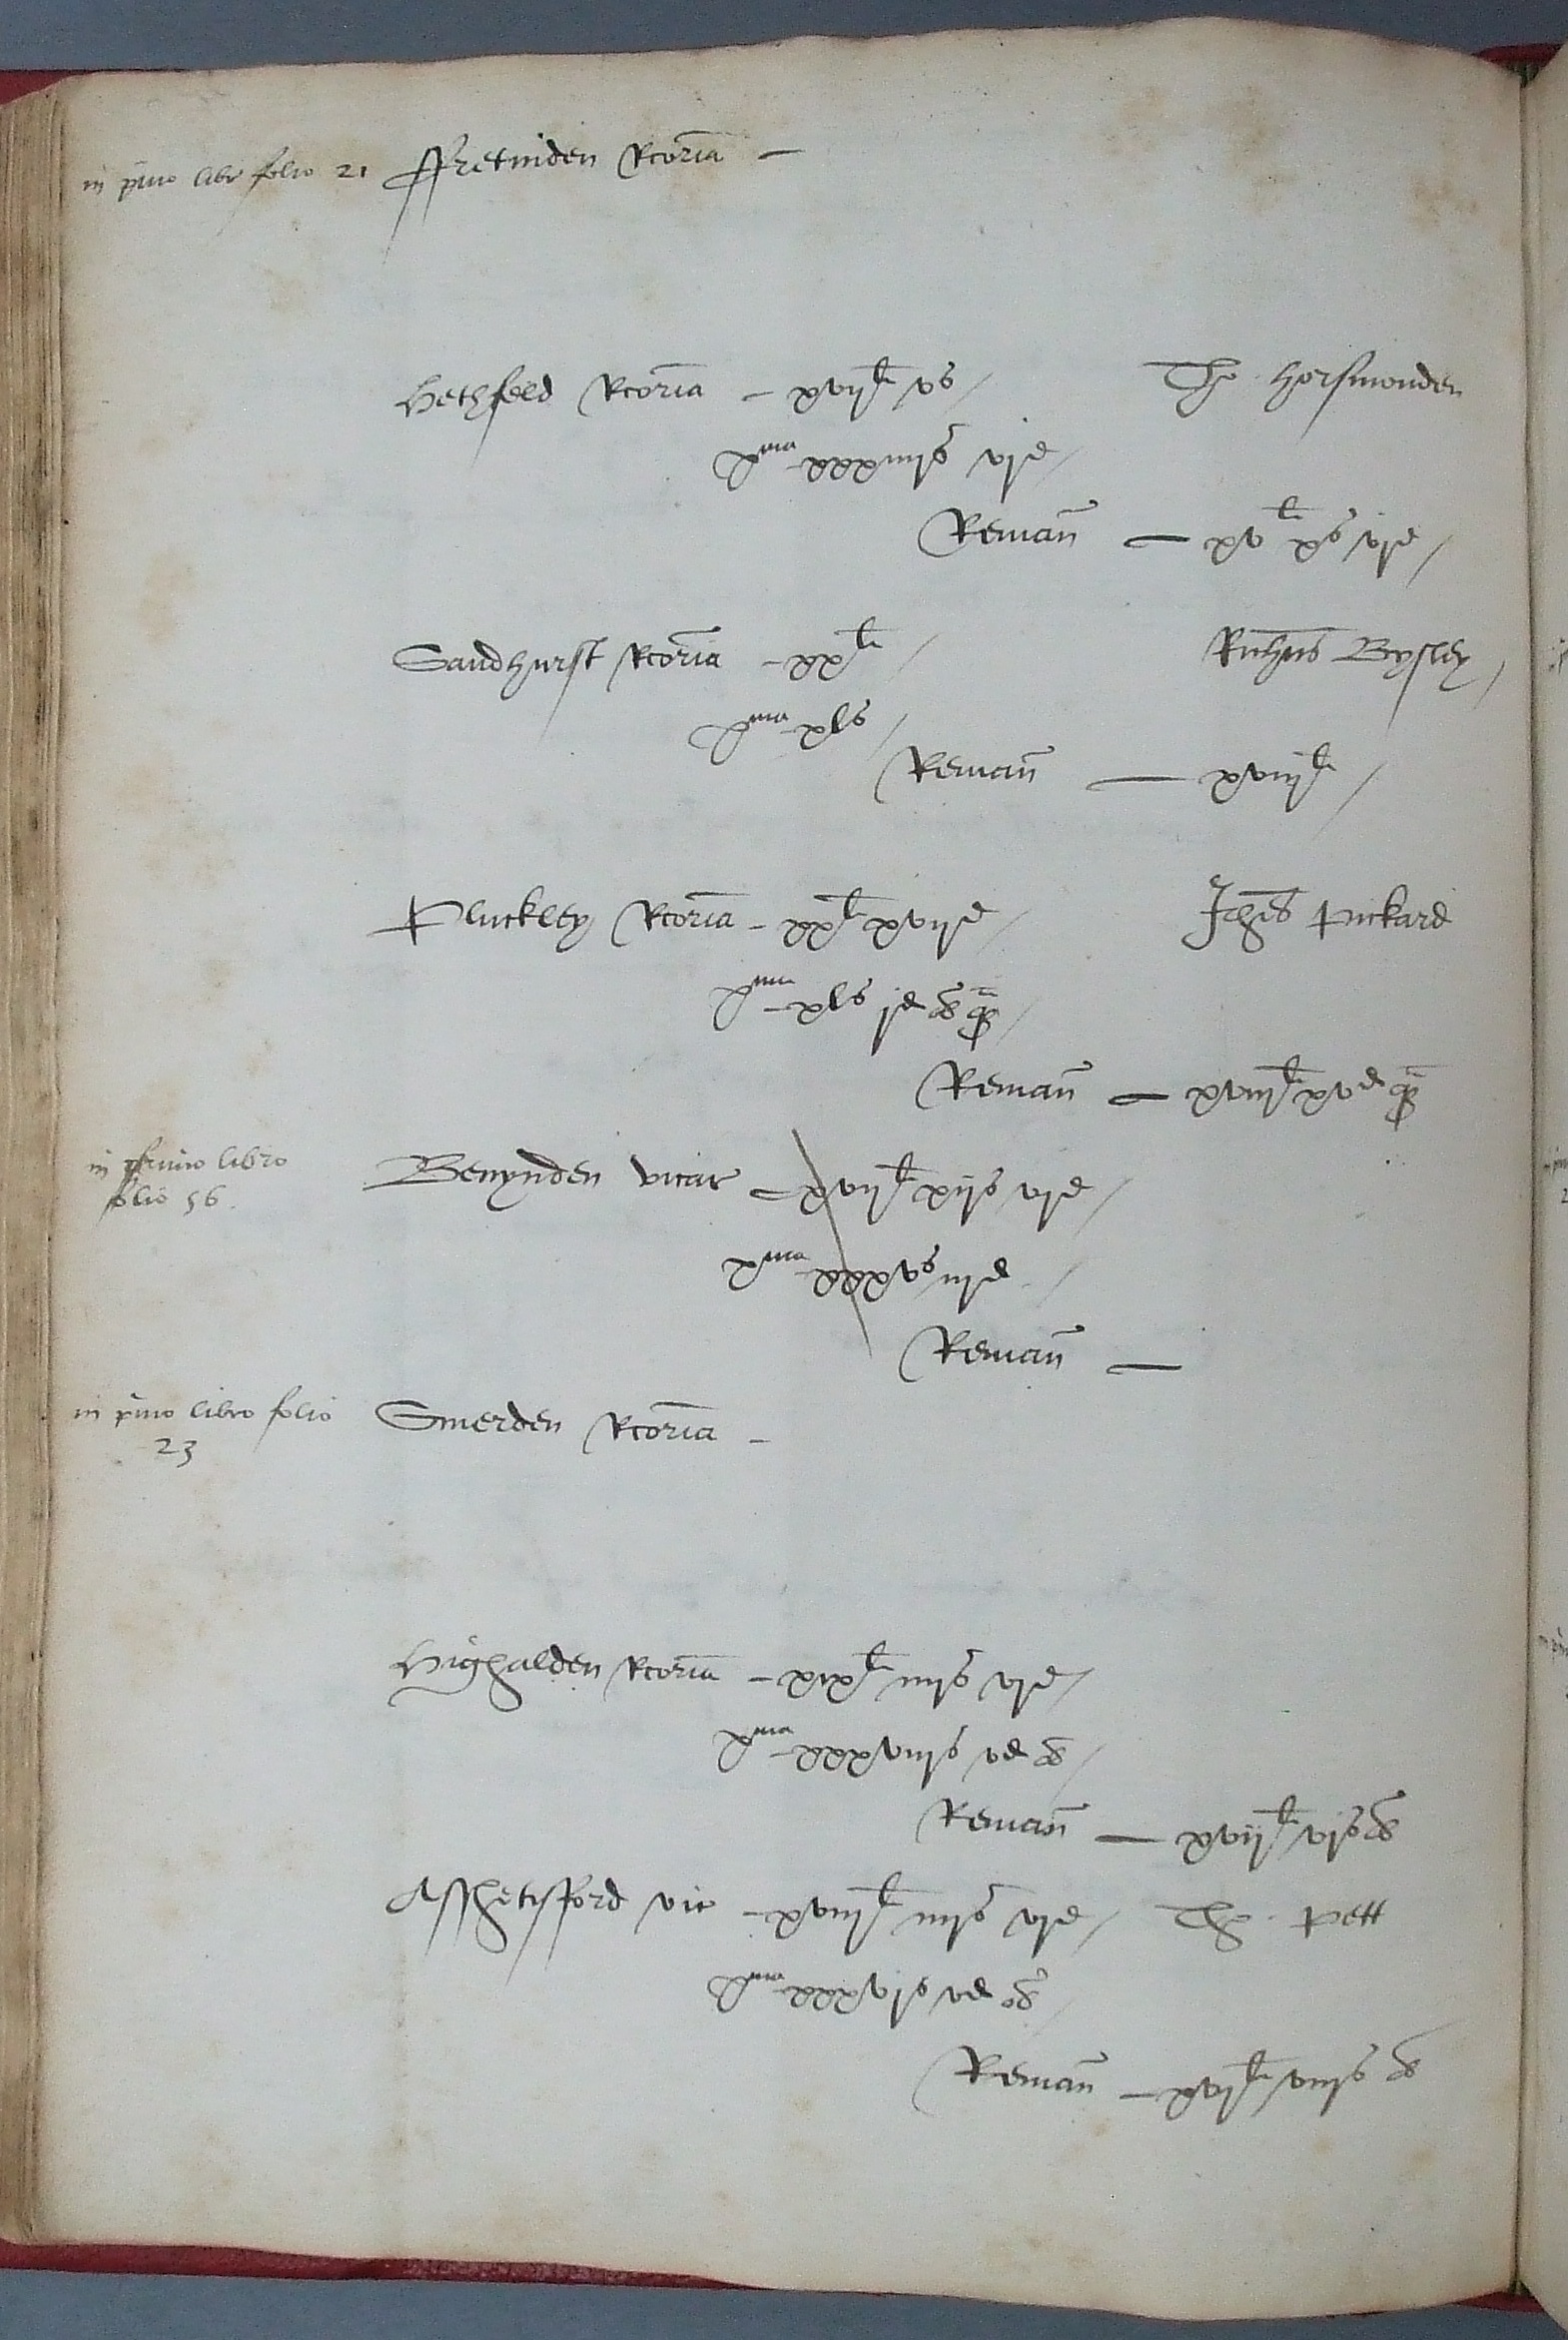 in pimo libr folio 21 ffretinden Rcoria —
Hethfeld Rcoria – xvij li vs / Th. Horsmonden
xma xxxiiijs vjd /
Remañ — xv li xs vjd /
Sandhurst Rcoria – xx li / Richus Bysley /
xma xls /
Remañ — xviij li /
Pluckley Rcoria – xx li xvijd / Johes Pickard
xma – xls jd ob qa /
Remañ — xviij li xvd qa
in primo libro
folio 56.
Benynden vicar – xvij li xijs vjd /
xma xxxvs iijd /
Remañ —
in pimo libro folio
23
Smerden Rcoria –
Highalden Rcoria – xix li iiijs vjd /
xma – xxxviijs vd ob /
Remañ — xvij li vjs ob
Asshetisfford vic – xviij li iiijs vjd / Th. Pett
xma – xxxvjs vd ob /
Remañ – xvj li viijs ob